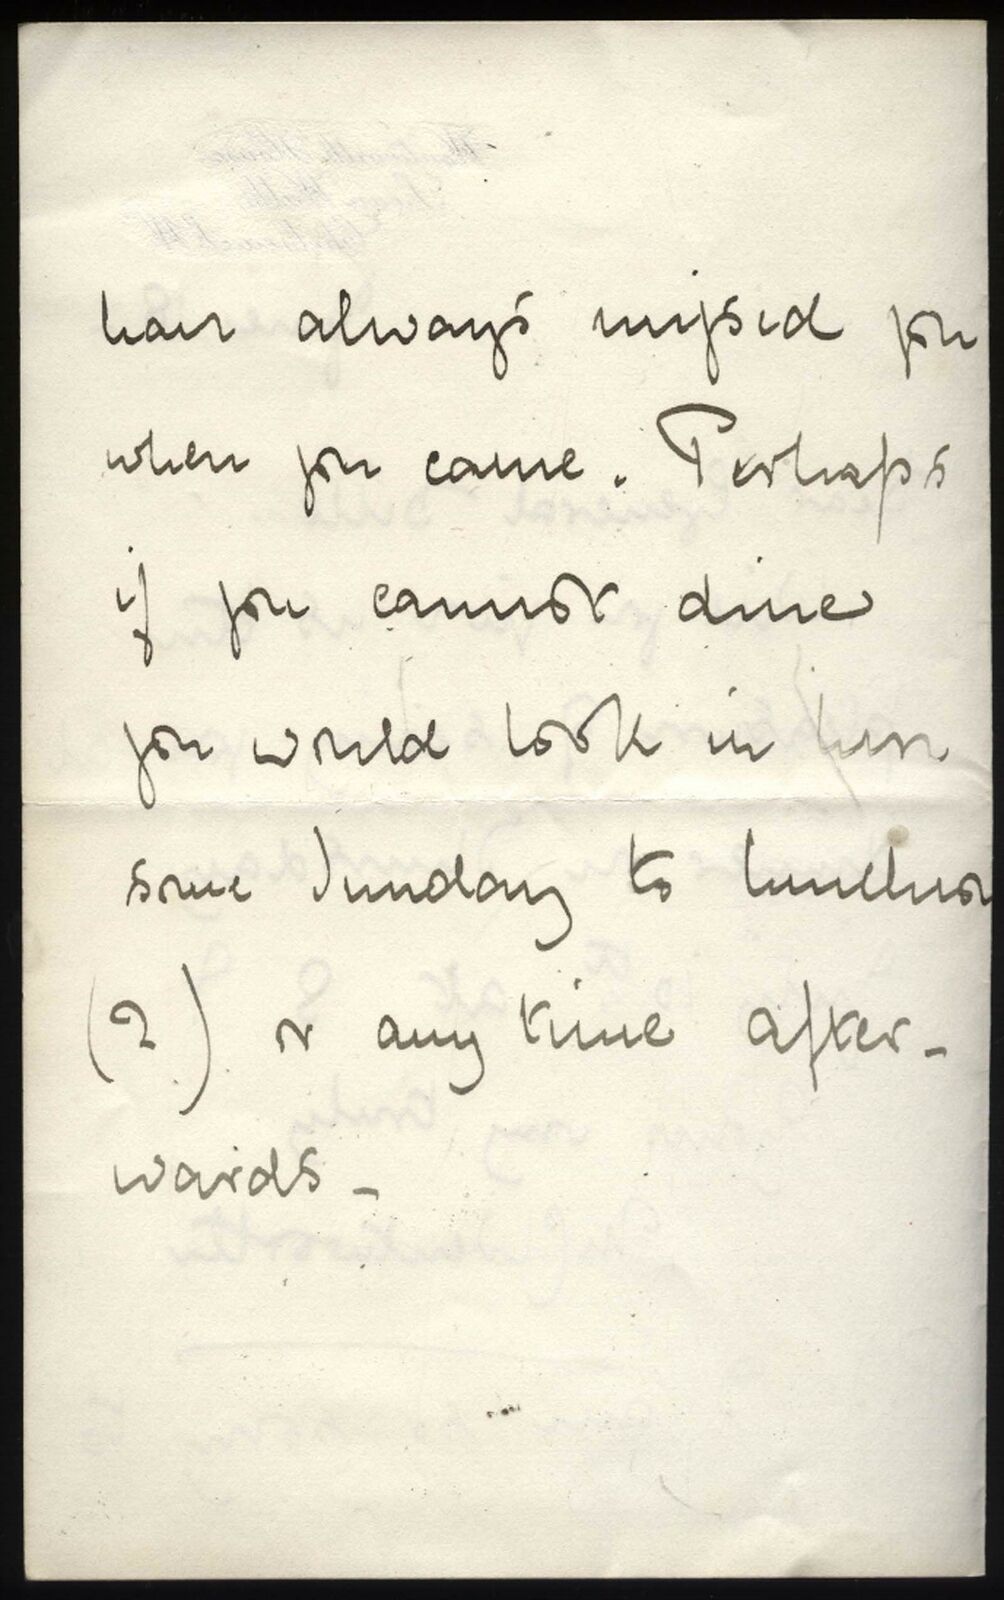 have always missed you
when you came. Perhaps
if you cannot dine
you would look in here
some Sunday to luncheon
(2) or any time after-
wards -